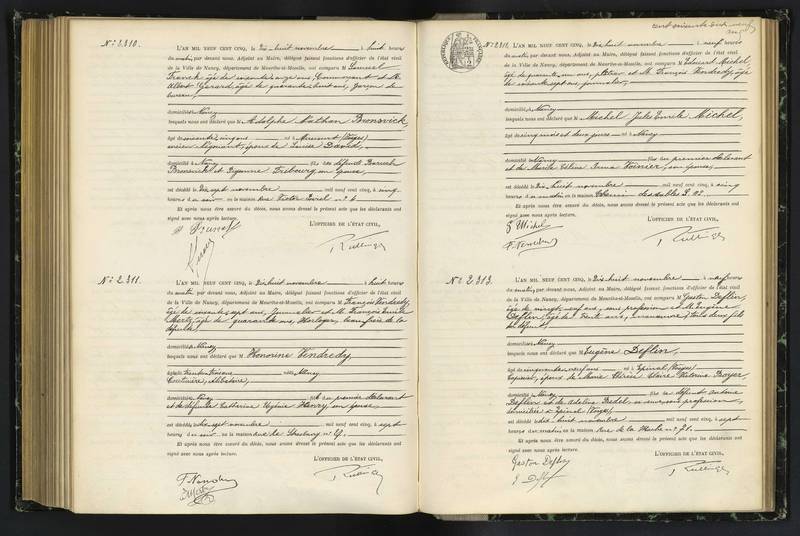 N° 2310.
L'AN MIL NEUF CENT CINQ, le Dix-huit novembre à huit heures
du matin, par devant nous, Adjoint au Maire, délégué faisant fonctions d'officier de l'état civil
de la Ville de Nancy, département de Meurthe-et-Moselle, ont comparu M. Samuel
Franck âgé de cinquante onze ans, Commerçant et M.
Albert Gérard, âgé de quarante huit ans, garçon de
bureau,
domiciliés à Nancy
lesquels nous ont déclaré que M. Adolphe Nathan Brunswick,
âgé de soixante cinq ans né à Mirecourt (Vosges)
ancien négociant, époux de Louise David,
domicilié à Nancy Fils des défunts Baruch
Brunswick et Fribourg son épouse,
est décédé le Dix sept novembre mil neuf cent cinq, à cinq
heures du soir en la maison Rue Victor n° 4
Et après nous être assuré du décès, nous avons dressé le présent acte que les déclarants ont
signé avec nous après lecture.
L'OFFICIER DE L'ÉTAT CIVIL,
N° 2311.
L'AN MIL NEUF CENT CINQ, le Dix-huit novembre à huit heures
du matin, par devant nous, Adjoint au Maire, délégué faisant fonctions d'officier de l'état civil
de la Ville de Nancy, département de Meurthe-et-Moselle, ont comparu M. François Vendredy,
âgé de cinquante sept ans, Journalier et M. François Emile
âgé de quarante ans, Horloger, beau frère de la
défunte,
domiciliés à Nancy
lesquels nous ont déclaré que M. Honorine Vendredy,
âgée de trente ans née à Nancy
Couturière, célibataire,
domiciliée à Nancy fille du premier déclarant
et de défunte Catherine Virginie Henry, son épouse,
est décédée le dix sept novembre mil neuf cent cinq, à sept
heures du soir en la maison Rue de Strasbourg n°
Et après nous être assuré du décès, nous avons dressé le présent acte que les déclarants ont
signé avec nous après lecture.
L'OFFICIER DE L'ÉTAT CIVIL,
cent soixante dix neuf
N° 2312.
L'AN MIL NEUF CENT CINQ, le Dix-huit novembre à neuf heures
du matin, par devant nous, Adjoint au Maire, délégué faisant fonctions d'officier de l'état civil
de la Ville de Nancy, département de Meurthe-et-Moselle, ont comparu M. Edouard Michel,
âgé de quarante un ans, plâtrier et M. François Vendredy, âgé
de cinquante sept ans, journalier,
domiciliés à Nancy
lesquels nous ont déclaré que M. Michel Jules Emile Michel,
âgé de cinq mois et deux jours né à Nancy
domicilié à Nancy Fils du premier déclarant
et de Marie Céline Anna Voinier, son épouse,
est décédé le Dix-huit novembre mil neuf cent cinq, à cinq
heures du matin en la maison Chemin des
Et après nous être assuré du décès, nous avons dressé le présent acte que les déclarants ont
signé avec nous après lecture.
L'OFFICIER DE L'ÉTAT CIVIL,
E Michel
F. Vendredy
N° 2313.
L'AN MIL NEUF CENT CINQ, le Dix huit novembre à neuf heures
du matin, par devant nous, Adjoint au Maire, délégué faisant fonctions d'officier de l'état civil
de la Ville de Nancy, département de Meurthe-et-Moselle, ont comparu M. Gaston Deflin,
âgé de vingt neuf ans, sans profession et M. Eugène
Deflin, âgé de trente ans, tous deux fils
du défunt,
domiciliés à Nancy
lesquels nous ont déclaré que M. Eugène Deflin,
âgé de cinquante neuf ans né à Épinal (Vosges)
Tapissier, époux de Marie Claire Victorine Royer,
domicilié à Nancy Fils de défunt Antoine
Deflin et de Adeline sa veuve sans profession,
domiciliée à Épinal (Vosges),
est décédé le dix-huit novembre mil neuf cent cinq, à sept
heures du matin en la maison Rue de la
Et après nous être assuré du décès, nous avons dressé le présent acte que les déclarants ont
signé avec nous après lecture.
L'OFFICIER DE L'ÉTAT CIVIL,
Gaston Deflin